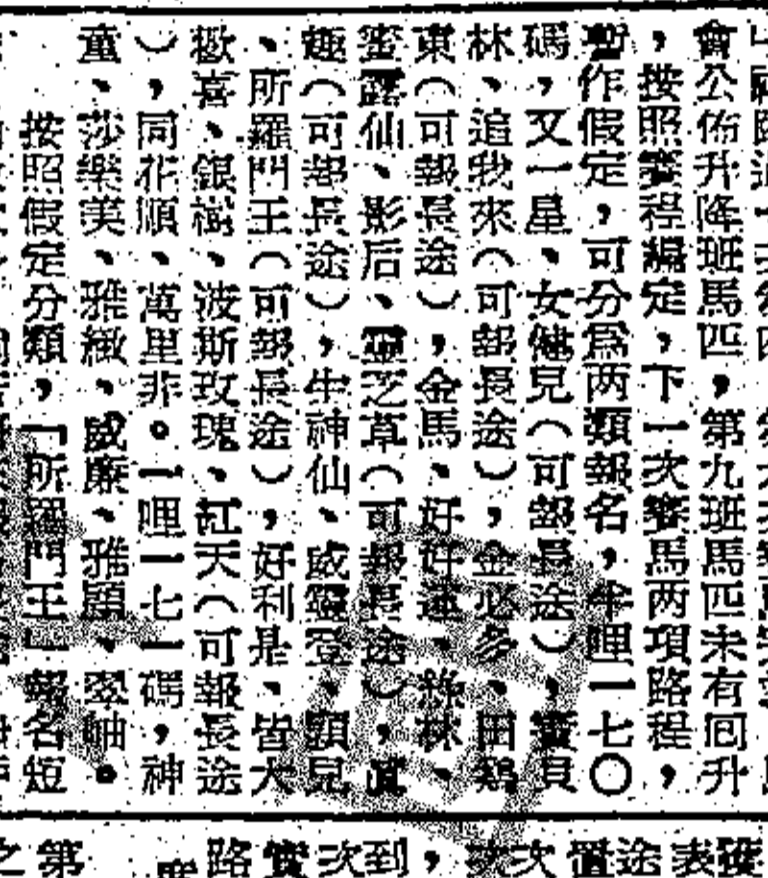 會公佈升降班馬匹，第九班馬匹未有囘升
，按照賽程編定，下一次賽馬两項路程，
暫作假定，可分爲两類報名，半哩一七〇
碼，又一星、女健兒（可報長途），寶貝
林、追我來（可報長途），金必多、田鷄
東（可報長途），金馬、好好運、綠林、
蜜露仙、影后、靈芝草（可報長途），眞
趣（可報長途），牛神仙、威靈登、顯見
、所羅門王（可報長途），好利是、皆大
歡喜、銀樹、波斯玫瑰、紅天（可報長途
），同花順、萬里非。一哩一七一碼，神
童、莎樂美、雅緻、威廉、雅願、翠岫。
按照假定分類，「所羅門王」報名短